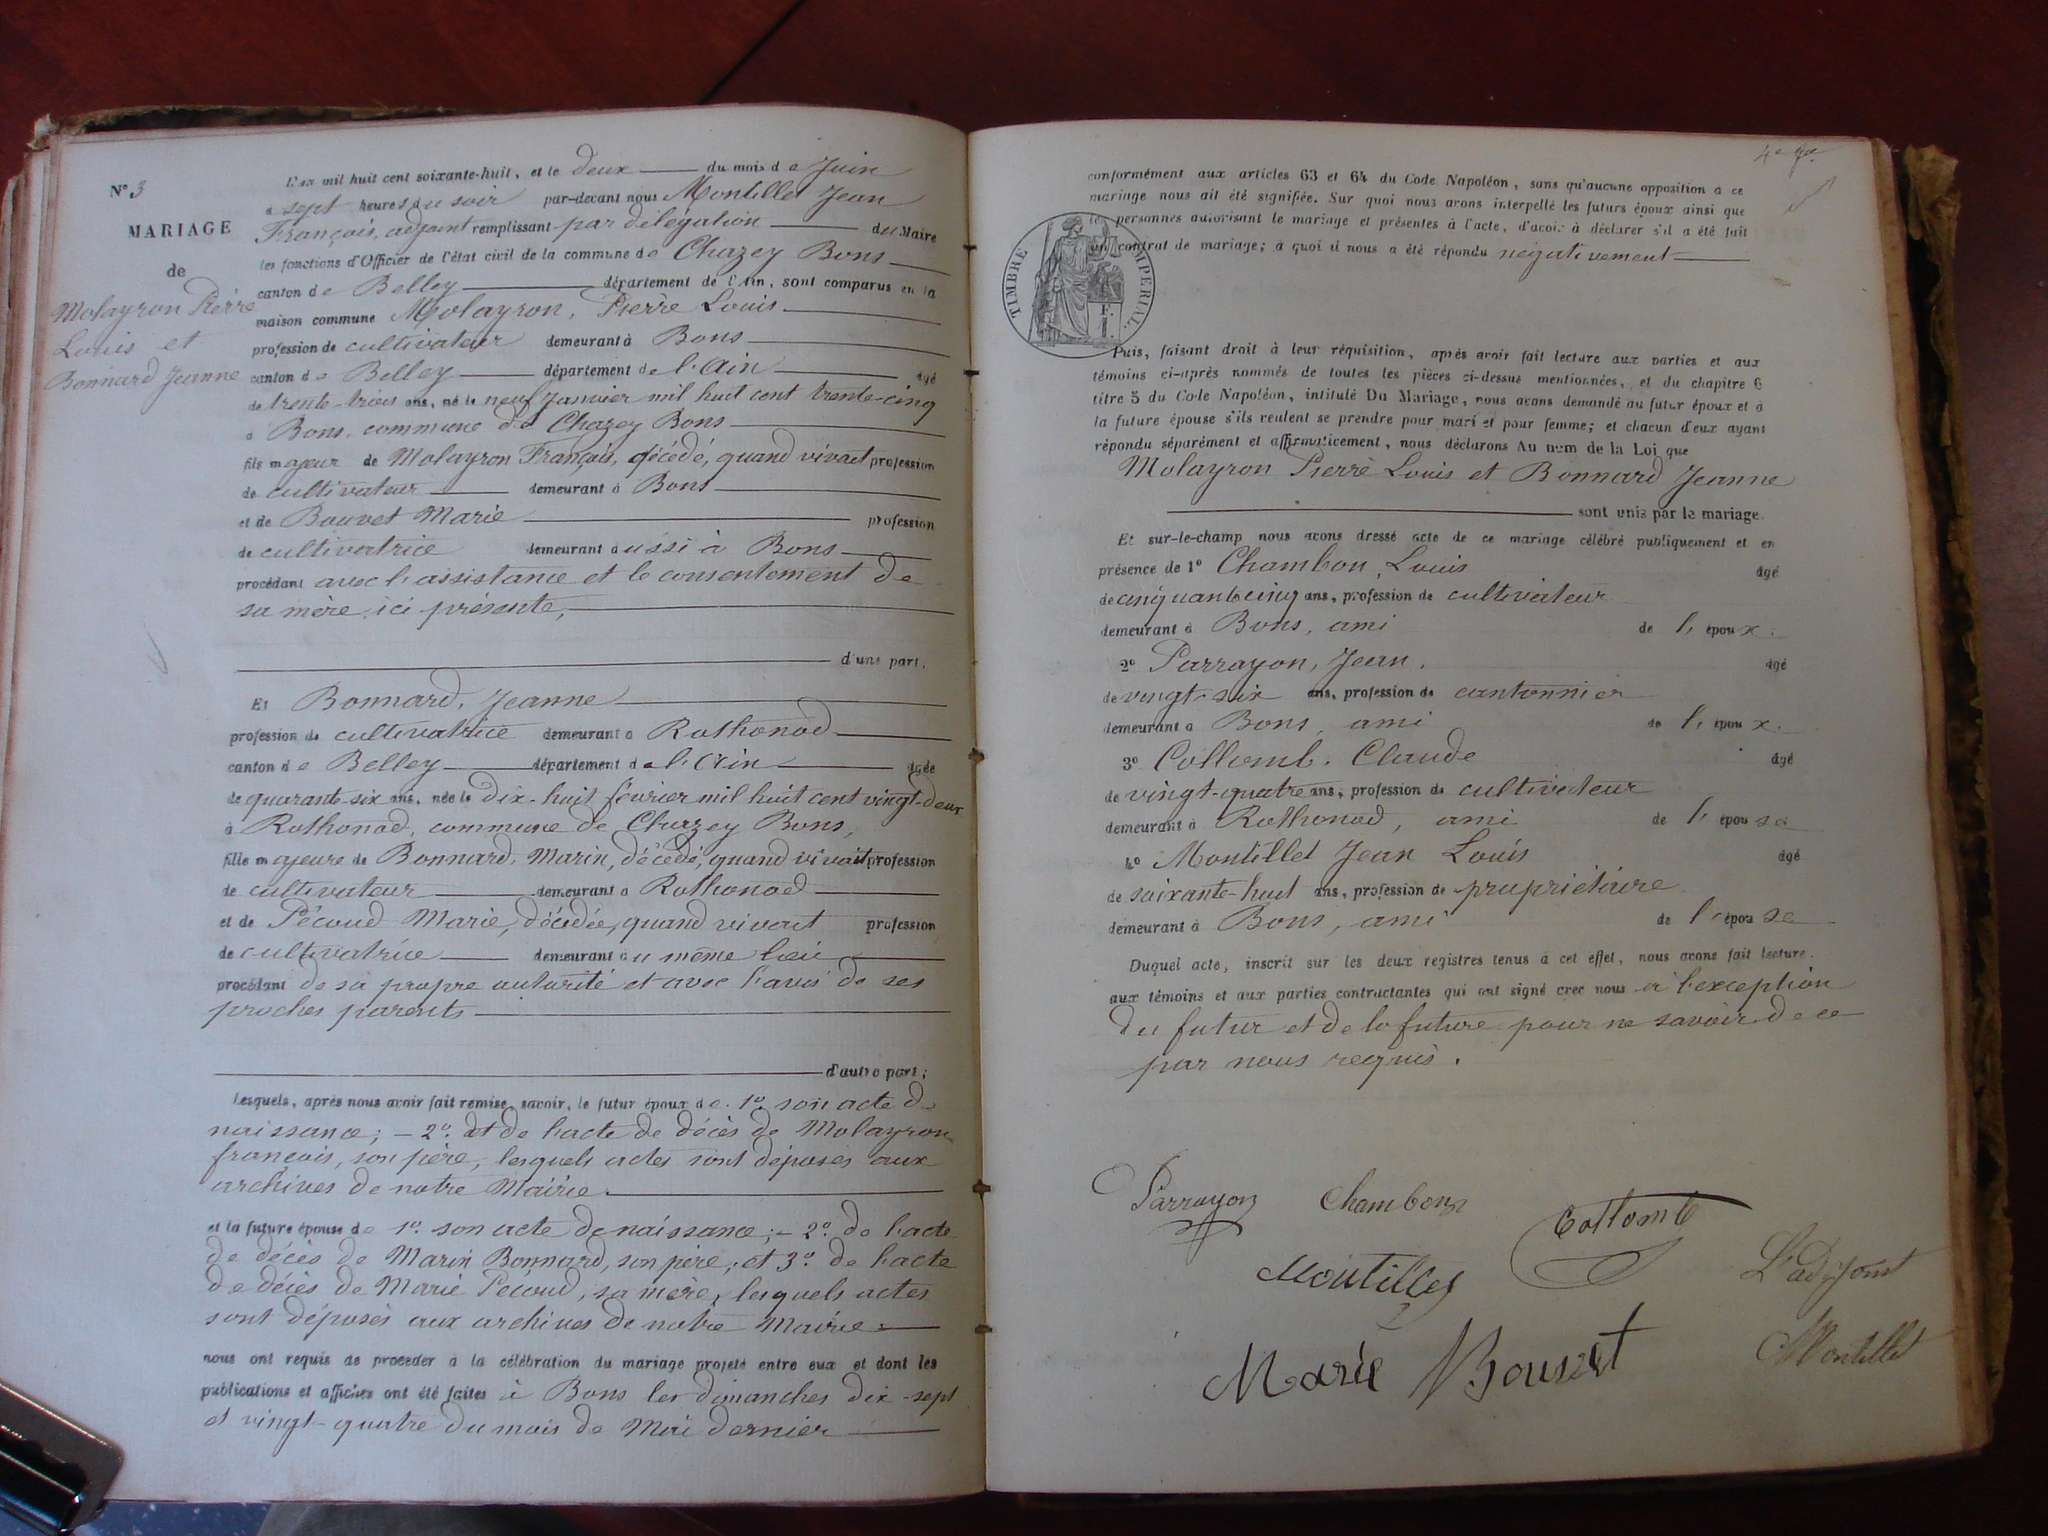 N° 3
MARIAGE
de
Molayron Pierre
Louis et
Bonnard Jeanne
L'an mil huit cent soixante-huit, et le deux du mois de Juin
à sept heures du soir par-devant nous Montillet Jean
François, adjoint remplissant par délégation du Maire
les fonctions d'Officier de l'état civil de la commune de Chazey Bons
canton de Belley département de l'Ain, sont comparus en la
maison commune Molayron, Pierre Louis
profession de cultivateur demeurant à Bons
canton de Belley département de l'Ain âgé
de trente-trois ans, né le neuf Janvier mil huit cent trente-cinq
à Bons, commune de Chazey Bons
fils majeur de Molayron François, décédé, quand vivait profession
de cultivateur demeurant à Bons
et de Bouvet Marie profession
de cultivatrice demeurant aussi à Bons
procédant avec l'assistance et le consentement de
sa mère ici présente,
d'une part,
Et Bonnard, Jeanne
profession de cultivatrice demeurant à Rothonod
canton de Belley département de l'Ain âgée
de quarante-six ans, née le dix-huit février mil huit cent vingt-deux
à Rothonod, commune de Chazey Bons,
fille majeure de Bonnard, Marin, décédé, quand vivait profession
de cultivateur demeurant à Rothonod
et de Pécoud Marie, décédée, quand vivait profession
de cultivatrice demeurant au même lieu
procédant de sa propre autorité et avec l'avis de ses
proches parents
d'autre part;
Lesquels, après nous avoir fait remise, savoir, le futur époux de 1° son acte de
naissance; - 2° et de l'acte de décès de Molayron
françois, son père, lesquels actes sont déposés aux
archives de notre Mairie.
et la future épouse de 1° son acte de naissance; - 2° de l'acte
de décès de Marin Bonnard, son père; et 3° de l'acte
de décès de Marie Pécoud, sa mère, lesquels actes
sont déposés aux archives de notre Mairie
nous ont requis de procéder à la célébration du mariage projeté entre eux et dont les
publications et affiches ont été faites à Bons les dimanches dix-sept
et vingt-quatre du mois de Mai dernier
conformément aux articles 63 et 64 du Code Napoléon, sans qu'aucune opposition à ce
mariage nous ait été signifiée. Sur quoi nous avons interpellé les futurs époux ainsi que
les personnes autorisant le mariage et présentes à l'acte, d'avoir à déclarer s'il a été fait
un contrat de mariage; à quoi il nous a été répondu négativement
TIMBRE IMPÉRIAL.
F. I.
Puis, faisant droit à leur réquisition, après avoir fait lecture aux parties et aux
témoins ci-après nommés de toutes les pièces ci-dessus mentionnées, et du chapitre 6
titre 5 du Code Napoléon, intitulé Du Mariage, nous avons demandé au futur époux et à
la future épouse s'ils veulent se prendre pour mari et pour femme; et chacun d'eux ayant
répondu séparément et affirmativement, nous déclarons Au nom de la Loi que
Molayron Pierre Louis et Bonnard Jeanne
sont unis par le mariage.
Et sur-le-champ nous avons dressé acte de ce mariage célébré publiquement et en
présence de 1° Chambon, Louis âgé
de cinquante cinq ans, profession de cultivateur
demeurant à Bons, ami de l'époux.
2° Parrayon, Jean. âgé
de vingt-six ans, profession de cantonnier
demeurant à Bons, ami de l'époux.
3° Collomb. Claude âgé
de vingt-quatre ans, profession de cultivateur
demeurant à Rothonod, ami de l'épouse
4° Montillet Jean Louis âgé
de soixante-huit ans, profession de propriétaire
demeurant à Bons, ami de l'épouse
Duquel acte, inscrit sur les deux registres tenus à cet effet, nous avons fait lecture
aux témoins et aux parties contractantes qui ont signé avec nous à l'exception
du futur et de la future pour ne savoir de ce
par nous requis.
Parrayon Chambon
Collomb
Montillet
L'adjoint
Marie Bouvet
Montillet